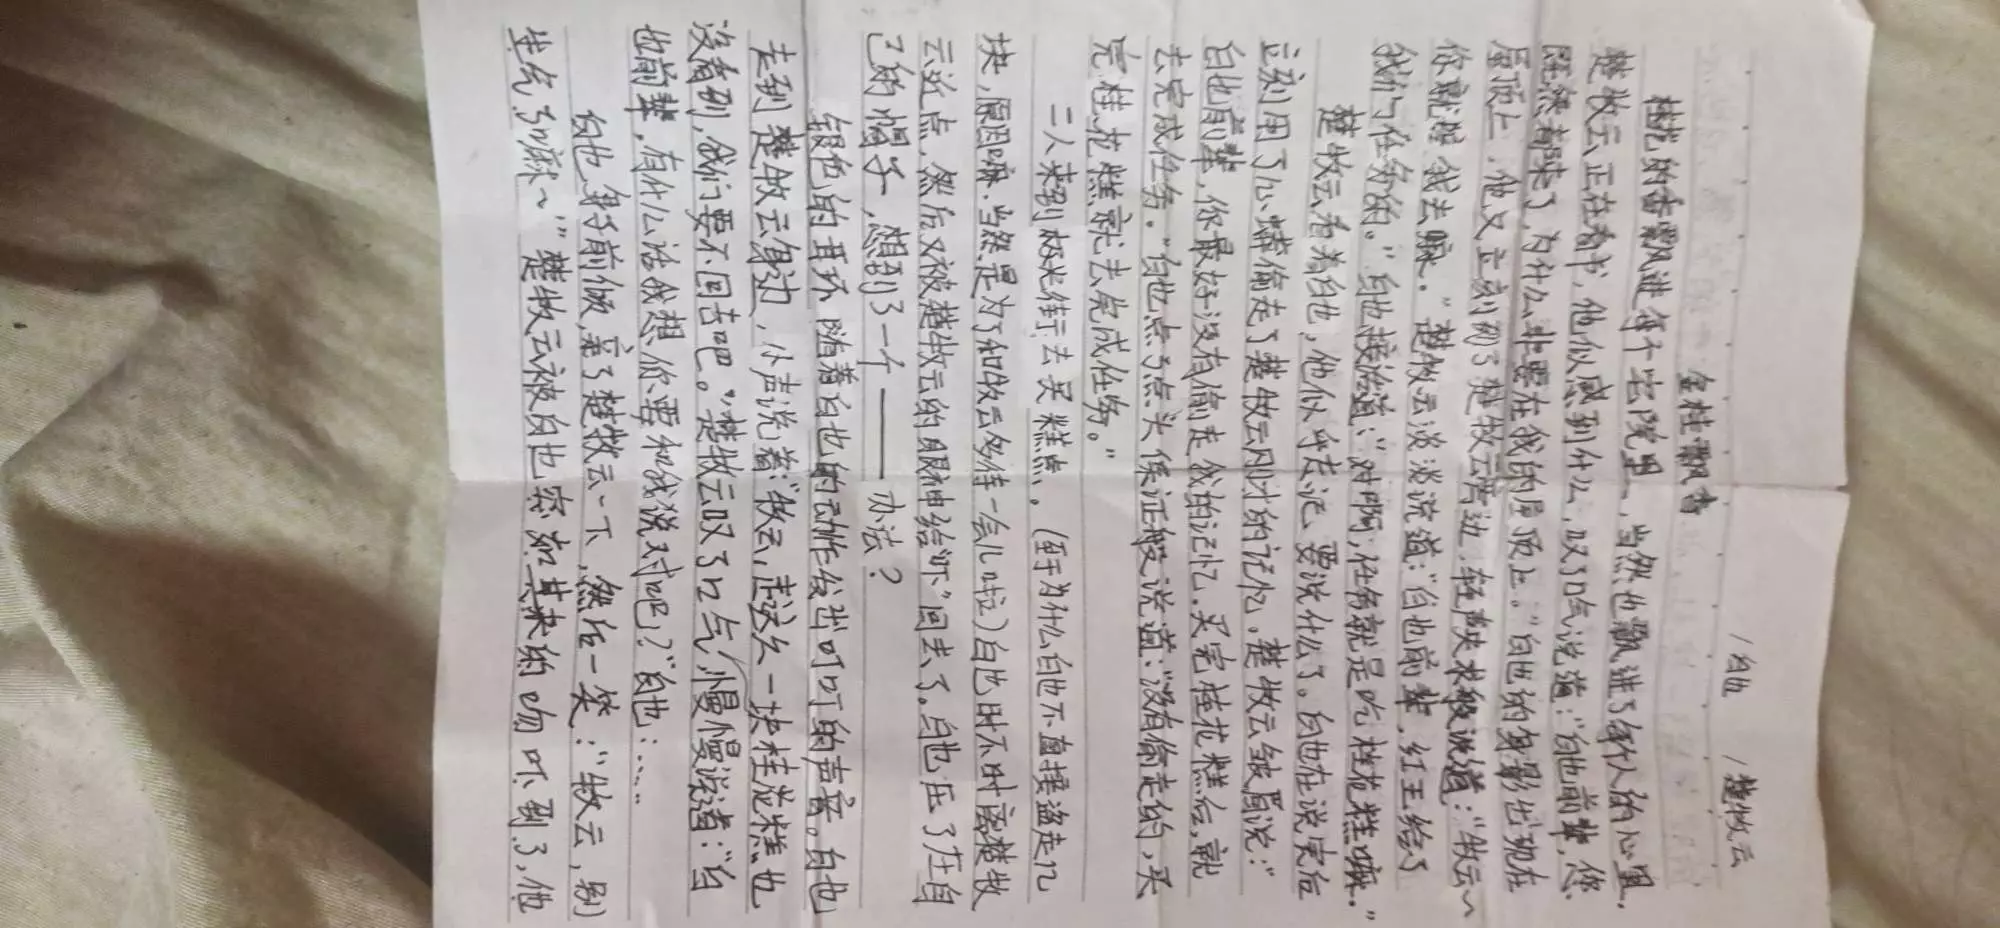 /白也 /楚牧云
金桂飘香
桂花的香飘进每个宅院里，当然也飘进了每个人的心里。
楚牧云正在看书，他似感到什么，叹了口气说道：“白也前辈，您
既然都来了，为什么非要在我的屋顶上。”白也的身影出现在
屋顶上，他又立刻到了楚牧云旁边，轻声央求般说道：“牧云～
你就陪我去嘛。”楚牧云淡淡说道：“白也前辈，红王给了
我们任务的。”白也接话道：“对啊，任务就是吃桂花糕嘛。”
楚牧云看着白也，他似乎忘记要说什么了。白也在说完后
立刻用了心蟒偷走了楚牧云刚才的记忆。楚牧云皱眉说：“
白也前辈，你最好没有偷走我的记忆，买完桂花糕后，就
去完成任务。”白也点了点头保证般说道：“没有偷走的，买
完桂花糕就去完成任务。”
二人来到极光街去买糕点。（至于为什么白也不直接盗走几
块，原因嘛.当然是为了和牧云多待一会儿啦）白也时不时离楚牧
云近点，然后又被楚牧云的眼神给“吓”回去了。白也压了压自
己的帽子，想到了一个——办法？
银色的耳环随着白也的动作发出叮叮的声音。白也
走到楚牧云身边，小声说着：“牧云，走这么一块桂花糕也
没看到，我们要不回去吧。”楚牧云叹了口气，慢慢说道：“白
也前辈，有什么话我想你要和我说对吧？”白也：……
白也身子前倾，亲了楚牧云一下，然后一笑：“牧云，别
生气了嘛～”楚牧云被白也突如其来的吻吓到了，他